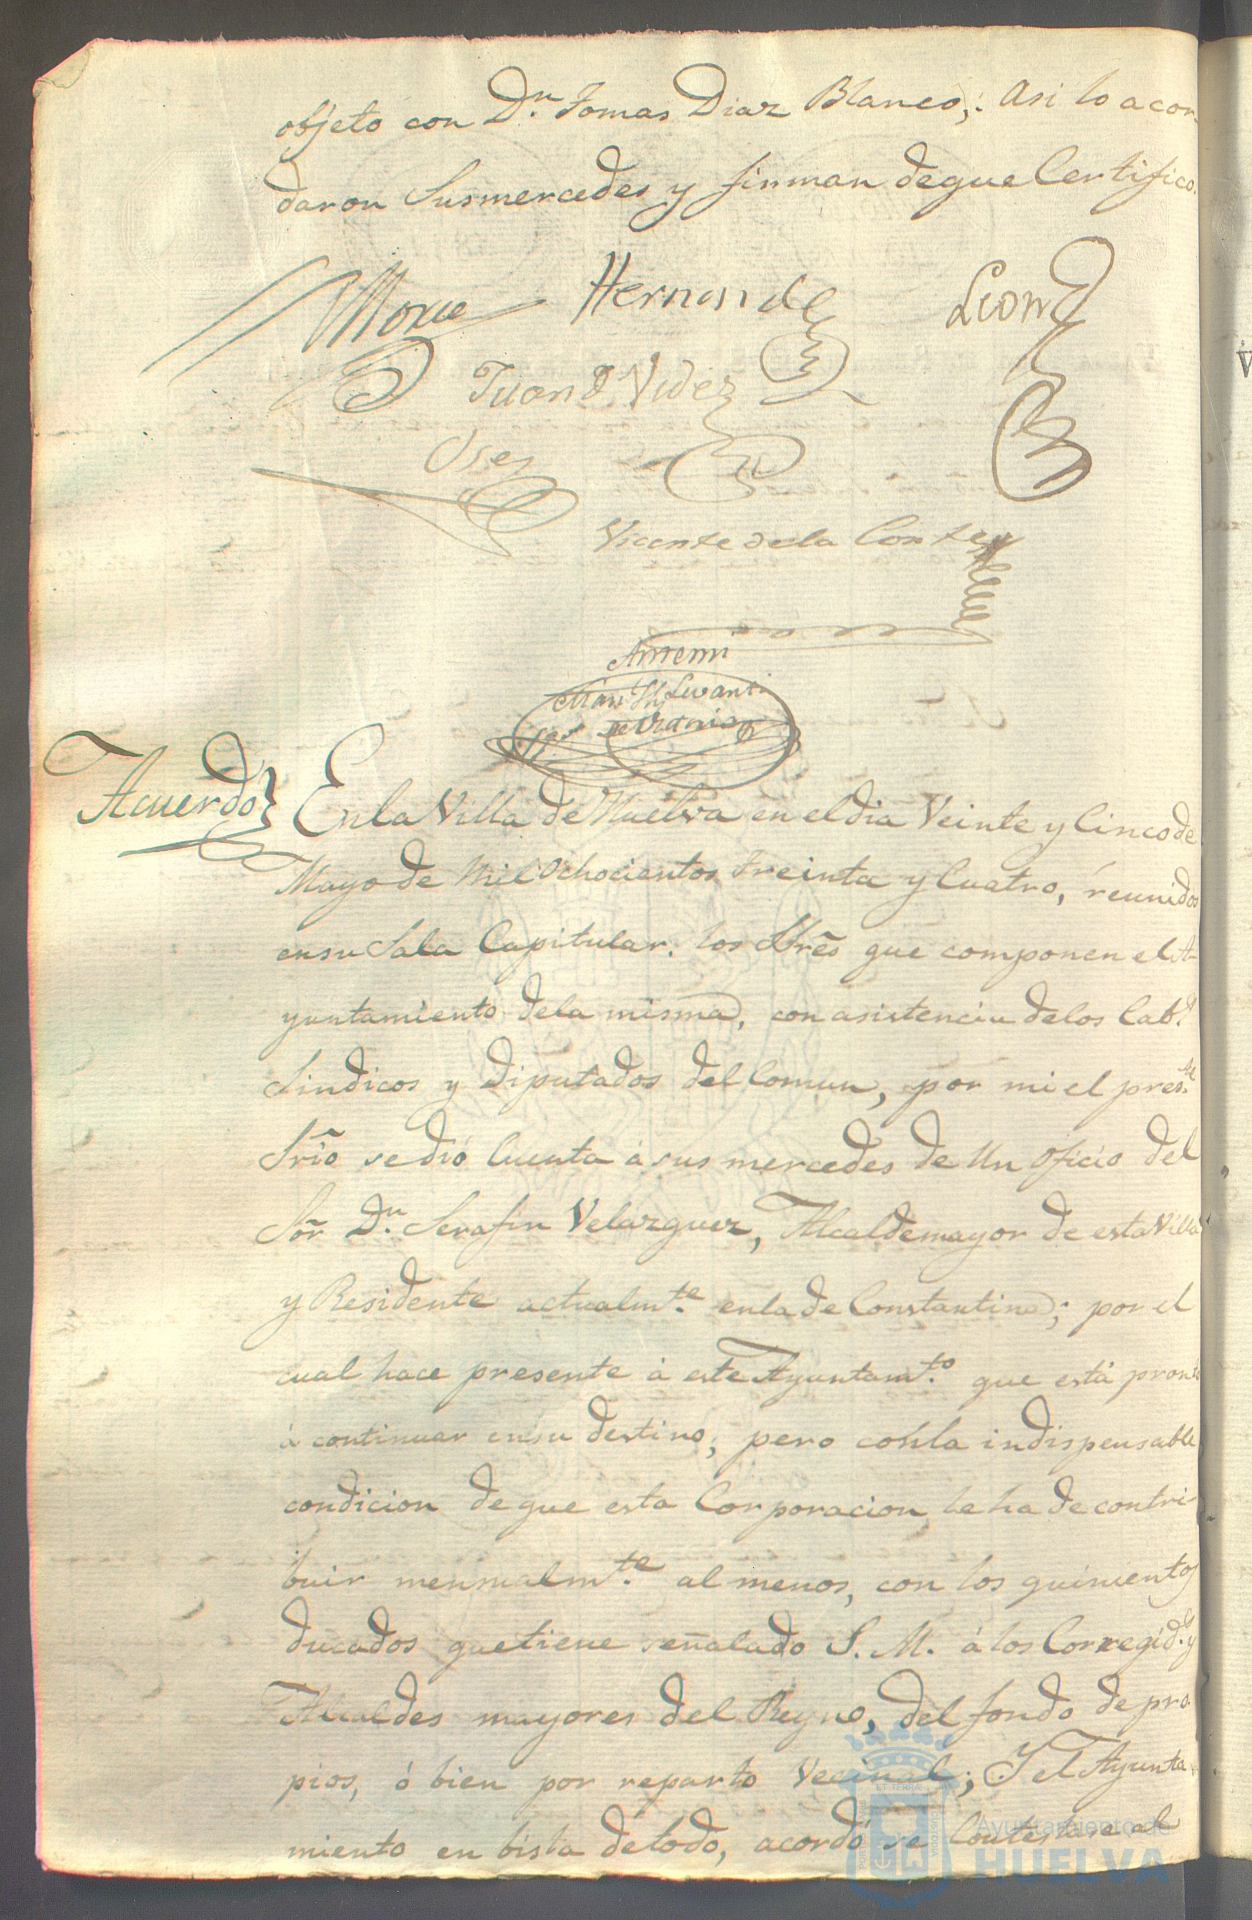 objeto con Dn. Tomas Diaz Blanco; Asi lo acor-
daron Susmercedes y firman deque Certifico.
Hernande
Leon
Juan
Vides
Vicente dela Corte
Antemi
Acuerdo
En la Villa de Huelva en el dia Veinte y Cinco de
Mayo de Mil Ochocientos Treinta y Cuatro, reunidos
en su Sala Capitular. los Sres que componen el A-
yuntamiento dela misma, con asistencia delos Cabs.
Sindicos y Diputados del Comun, por mi el preste.
Srio se dió Cuenta á sus mercedes de Un Oficio del
Sor Dn. Serafin Velazquez, Alcaldemayor de esta Villa
y Residente actualmte. enla de Constantina; por el
cual hace presente á este Ayuntamto. que está pronto
á continuar ensu destino; pero conla indispensable
condicion de que esta Corporacion le ha de contri-
buir mensualmte. al menos, con los quinientos
ducados quetiene señalado S. M. á los Corregids. y
Alcaldes mayores del Reyno, del fondo de pro
pios, ó bien por reparto Vecinal; Y el Ayunta
miento en bista detodo, acordó se Contestase al
Ayuntamiento de
HUELVA